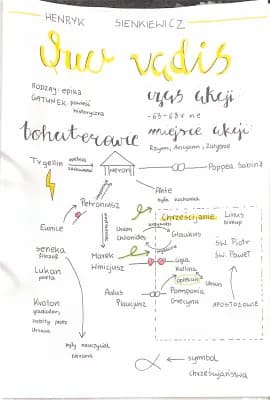 HENRYK SIENKIEWICZ
Quo vadis
RODZAJ - epika
GATUNEK - powieść
historyczna
czas akcji
- 63-68 r ne
miejsce akcji
Rzym, Ancjum,
bohaterowie
Tygellin
NERON
Poppea Sabina
Akte
była kochanka
Petroniusz
Eunice
Chrześcijanie
Linus
biskup
Chilon
Chilonides
Glaukus
Św. Piotr
Św. Paweł
Seneka
filozof
Marek
Winicjusz
Ligia
Kallina
Lukan
poeta
opiekun
Ursus
Aulus
Plaucjusz
Pomponia
Grecyna
APOSTOŁOWIE
Kroton
gladiator,
zabity przez
Ursusa
były nauczyciel
Nerona
symbol
chrześcijaństwa